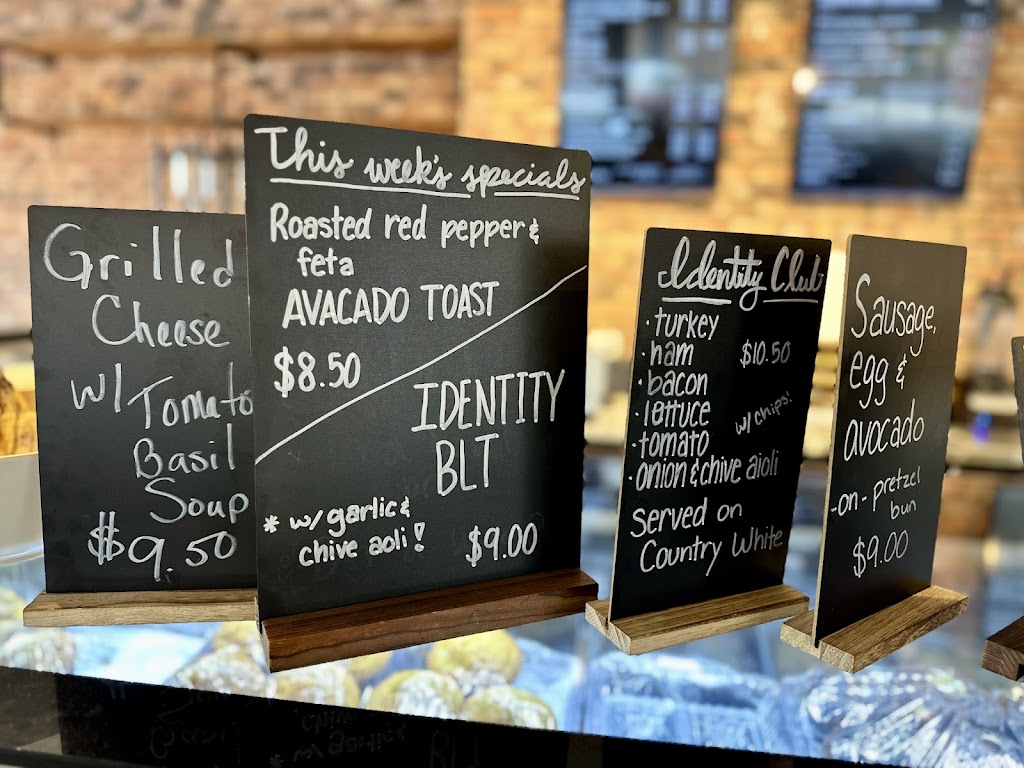 Grilled
Cheese
w/ Tomato
Basil
Soup
$9.50
This week's specials
Roasted red pepper &
feta
AVACADO TOAST
$8.50
IDENTITY
BLT
* w/ garlic &
chive aoli!
$9.00
Identity Club
· turkey
· ham
$10.50
· bacon
· lettuce
w/ chips!
· tomato
· onion & chive aioli
Served on
Country White
Sausage,
egg &
avocado
-on-pretzel
bun
$9.00